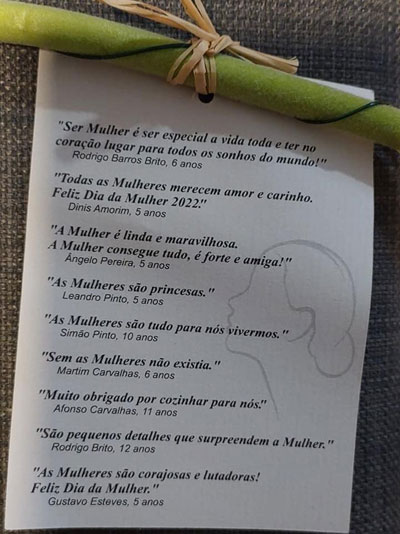 "Ser Mulher é ser especial a vida toda e ter no
coração lugar para todos os sonhos do mundo!"
Rodrigo Barros Brito, 6 anos
"Todas as Mulheres merecem amor e carinho.
Feliz Dia da Mulher 2022."
Dinis Amorim, 5 anos
"A Mulher é linda e maravilhosa.
A Mulher consegue tudo, é forte e amiga!"
Ângelo Pereira, 5 anos
"As Mulheres são princesas."
Leandro Pinto, 5 anos
"As Mulheres são tudo para nós vivermos."
Simão Pinto, 10 anos
"Sem as Mulheres não existia."
Martim Carvalhas, 6 anos
"Muito obrigado por cozinhar para nós."
Afonso Carvalhas, 11 anos
"São pequenos detalhes que surpreendem a Mulher."
Rodrigo Brito, 12 anos
"As Mulheres são corajosas e lutadoras!
Feliz Dia da Mulher."
Gustavo Esteves, 5 anos